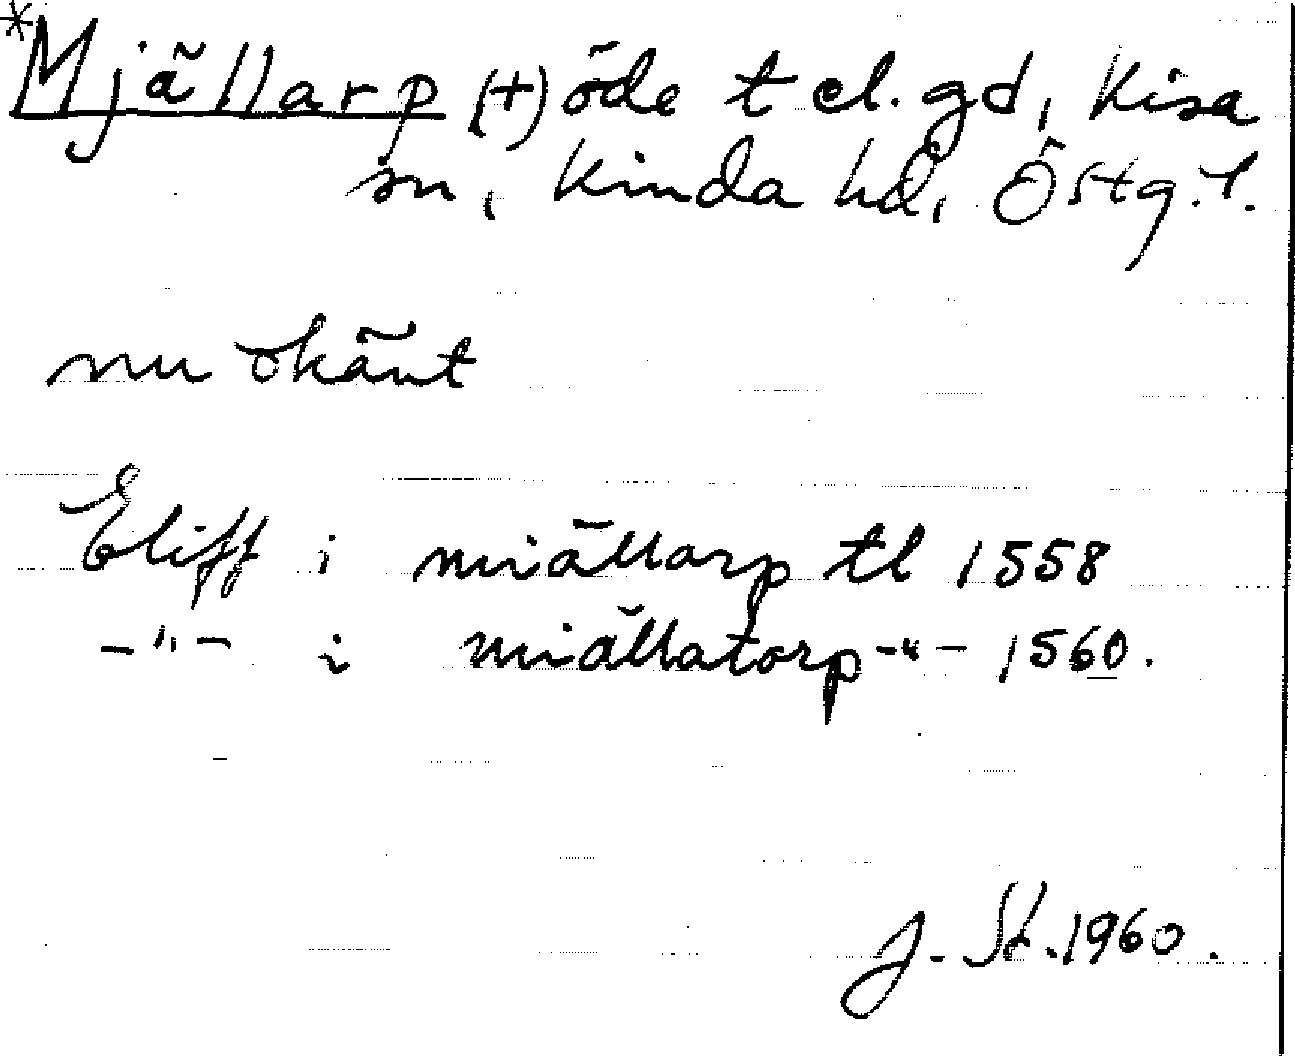 *Mjällarp (+) öde t el. gd, Kisa
sn, Kinda hd, Östg. l.
nu okänt
Eliff i miällarp tl 1558
-"- i miällatorp -"- 1560.
J. St. 1960.